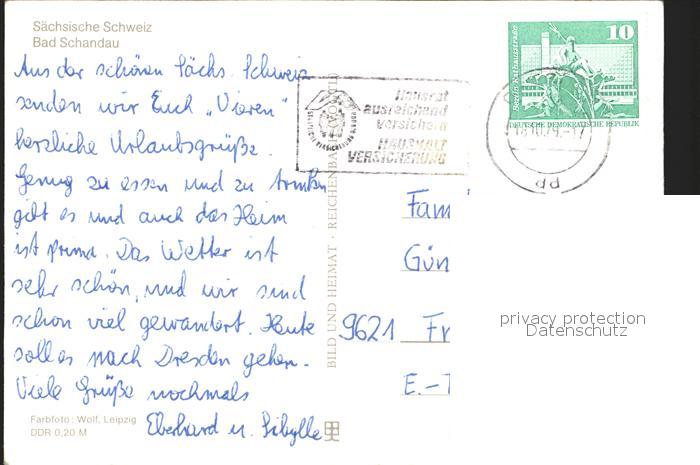 Sächsische Schweiz
Bad Schandau
Aus der schönen Sächs. Schweiz
senden wir Euch „Vieren"
herzliche Urlaubsgrüße.
Genug zu essen und zu trinken
gibt es und auch das Heim
ist prima. Das Wetter ist
sehr schön, und wir sind
schon viel gewandert. Heute
soll es nach Dresden gehen.
Viele Grüße nochmals
Eberhard u. Sibylle
Farbfoto: Wolf, Leipzig
DDR 0,20 M
BILD UND HEIMAT · REICHENBACH
Hausrat
ausreichend
versichern
HAUSHALT
VERSICHERUNG
10
Berlin Rathausstraße
DEUTSCHE DEMOKRATISCHE REPUBLIK
18.10.79.-17
Fam
Gün
9621 Fr
E.-T
privacy protection
Datenschutz